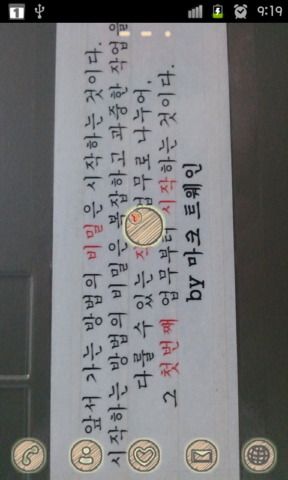 1
9:19
앞서 가는 방법의 비밀은 시작하는 것이다.
시작하는 방법의 비밀은 복잡하고 과중한 작업을
다룰 수 있는 업무로 나누어,
그 첫번째 업무부터 시작하는 것이다.
by 마크 트웨인